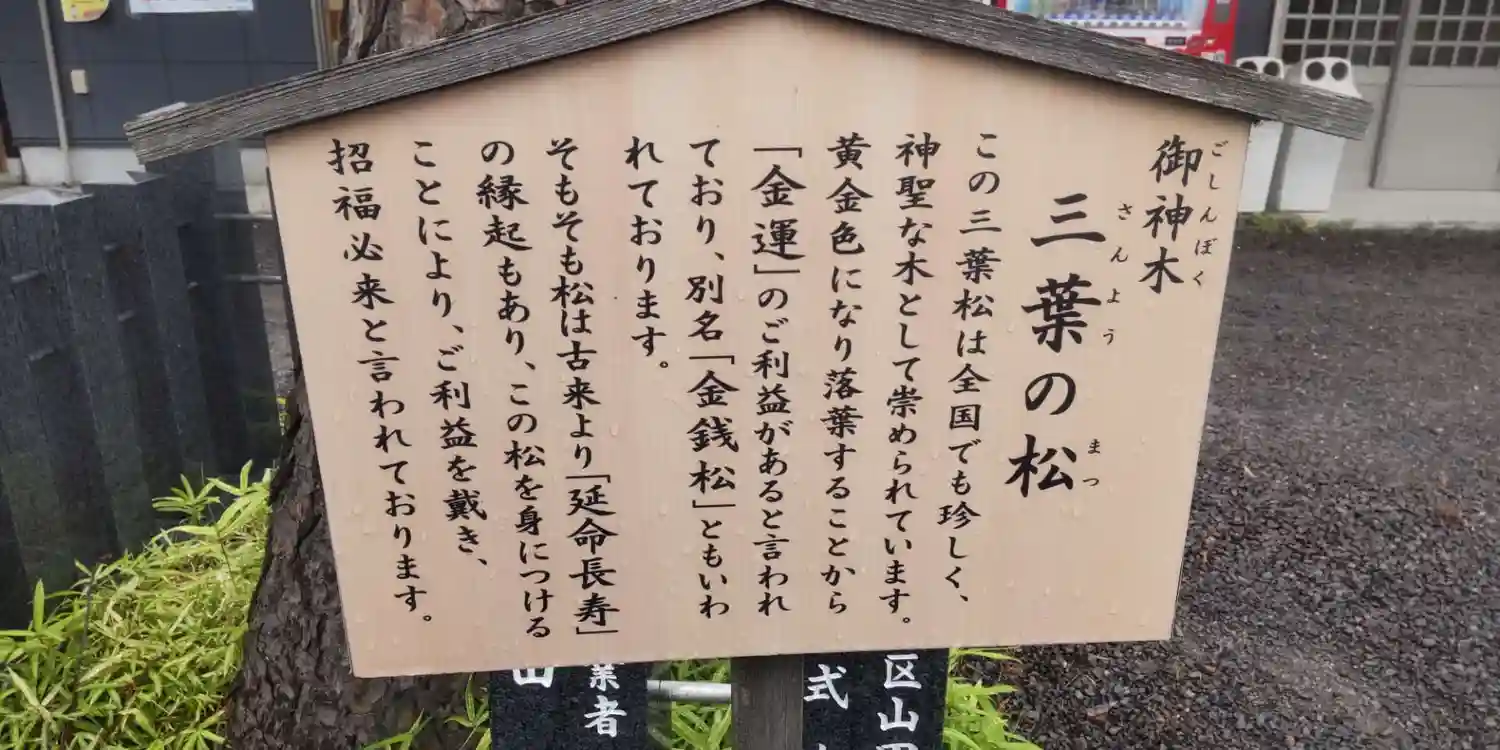 御神木
ごしんぼく
三葉の松
さんよう まつ
この三葉松は全国でも珍しく、
神聖な木として崇められています。
黄金色になり落葉することから
「金運」のご利益があると言われ
ており、別名「金銭松」ともいわ
れております。
そもそも松は古来より「延命長寿」
の縁起もあり、この松を身につける
ことにより、ご利益を戴き、
招福必来と言われております。
区山
式
業者